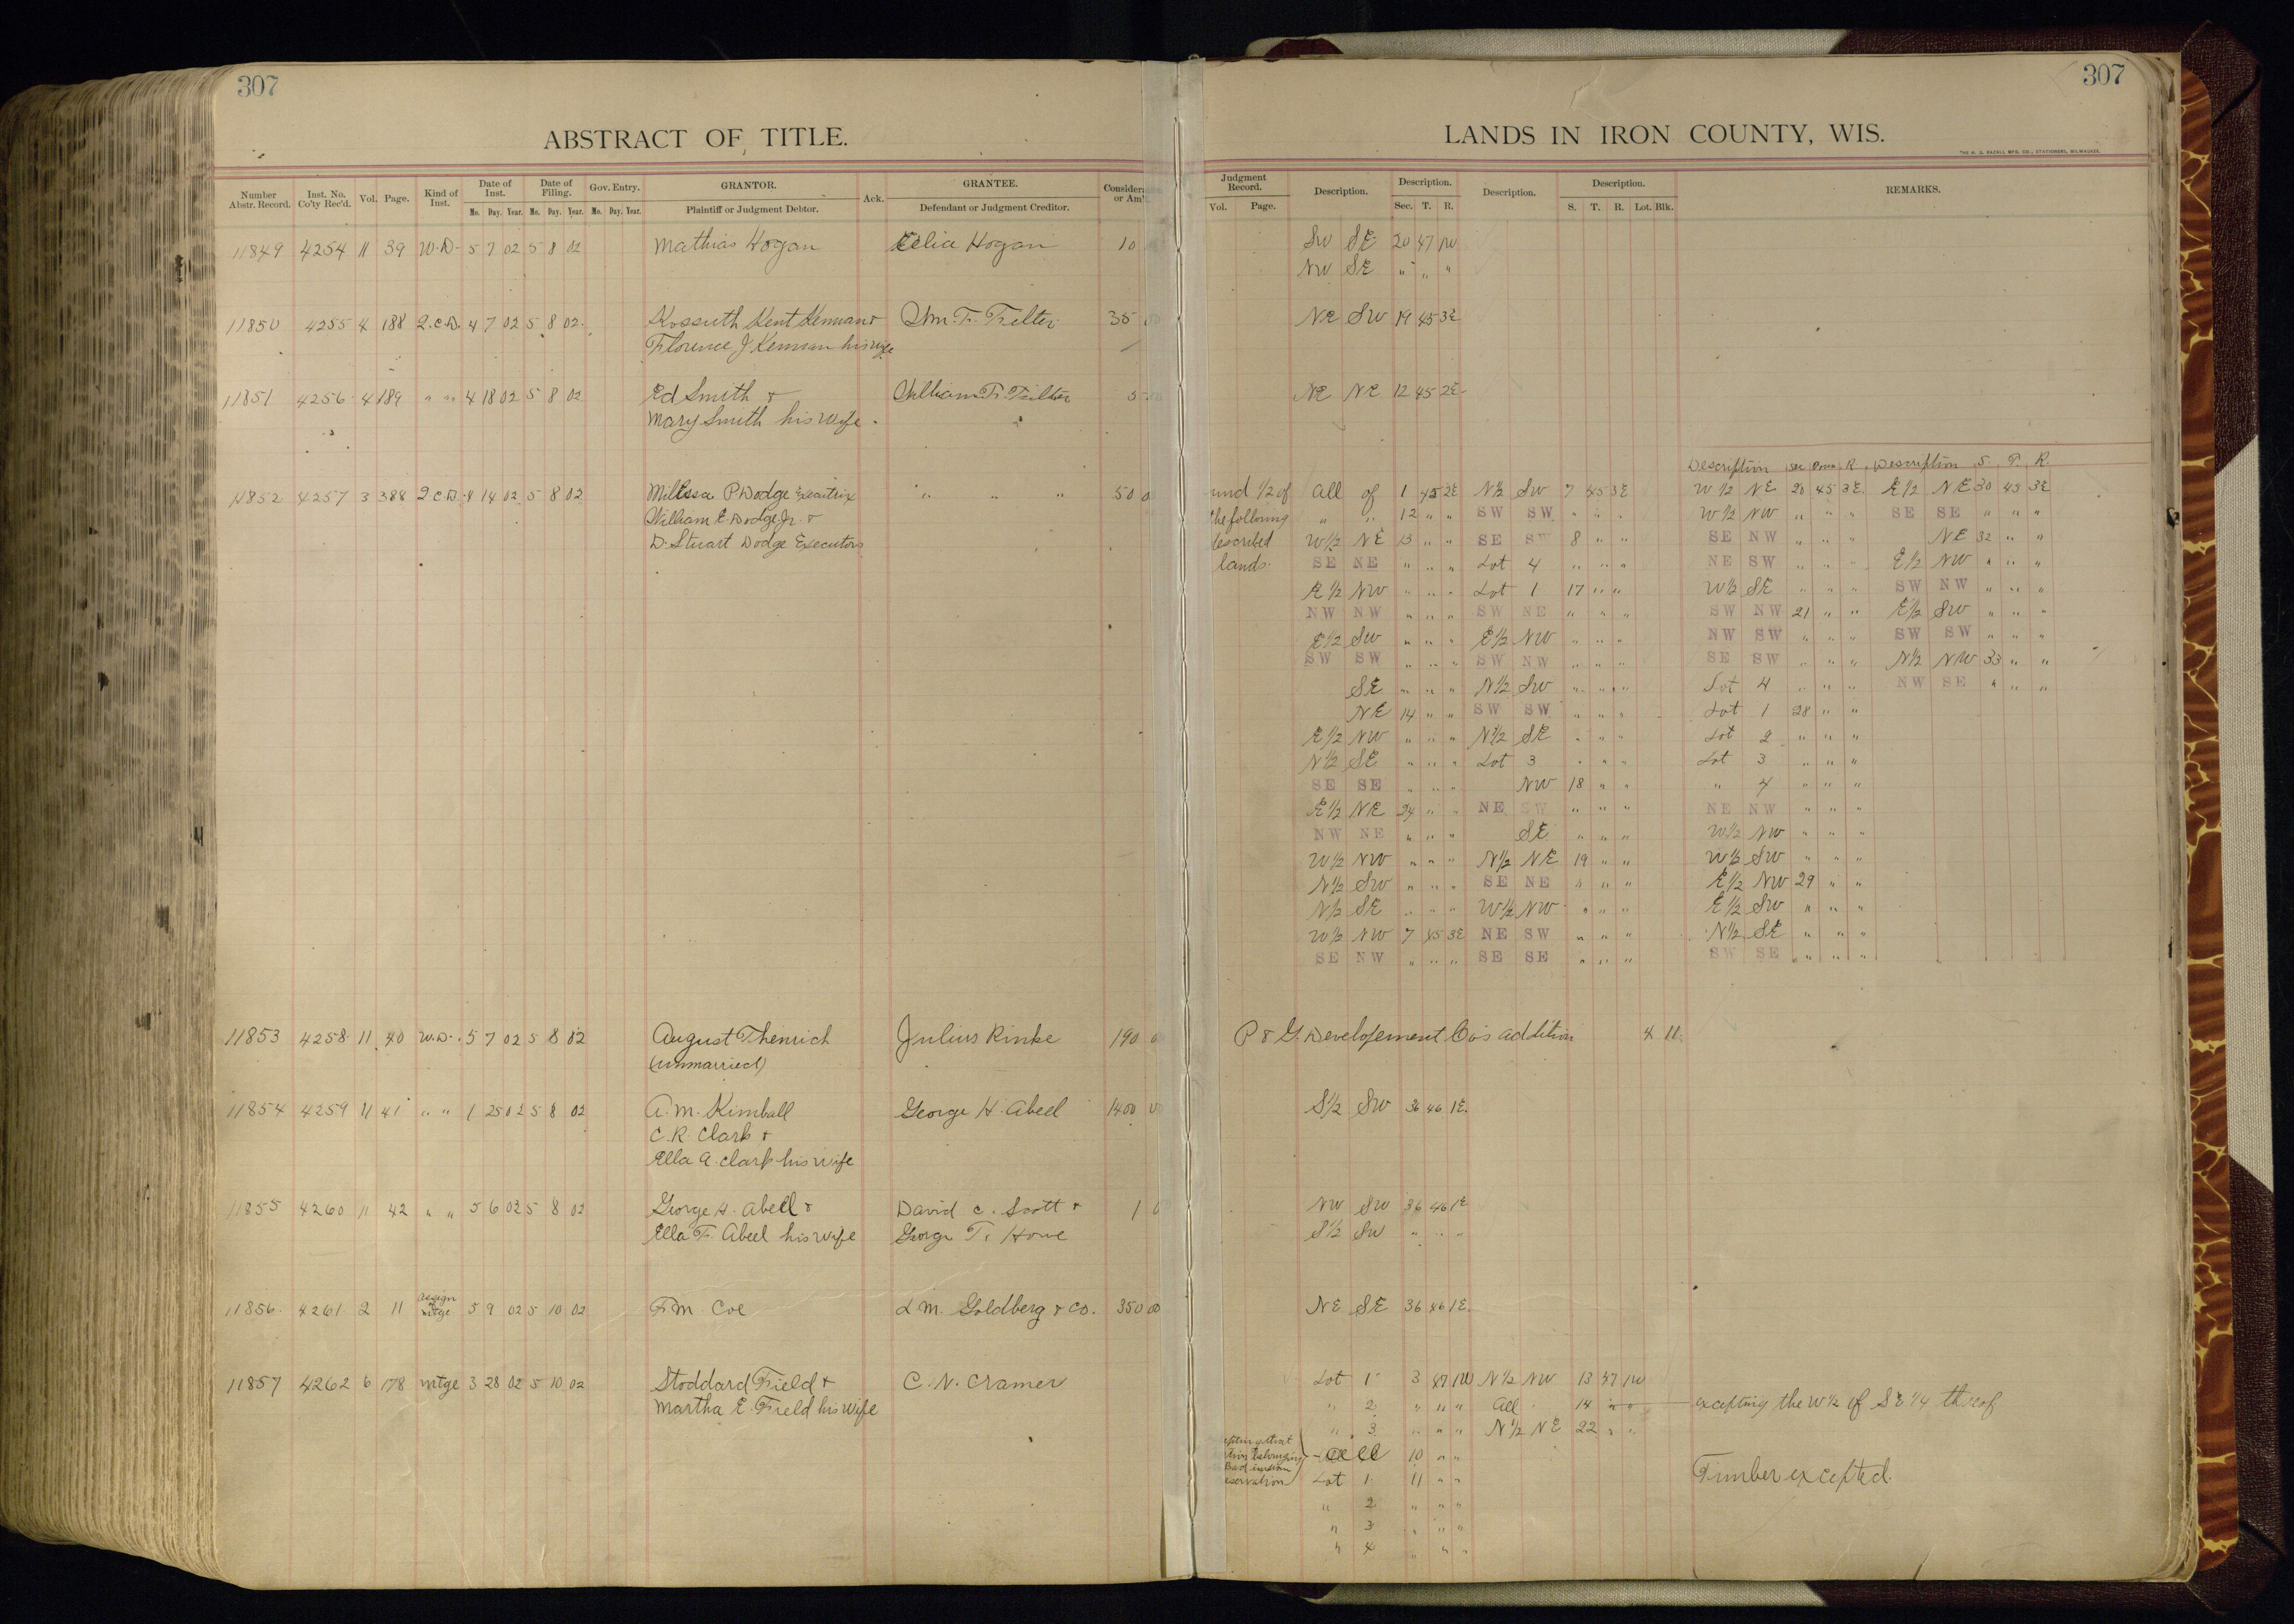 307
ABSTRACT OF TITLE.
Number Abstr. Record. Inst. No. Co'ty Rec'd. Vol. Page. Kind of Inst. Date of Inst. Mo. Day. Year. Date of Filing. Mo. Day. Year. Gov. Entry. Mo. Day. Year. GRANTOR. Plaintiff or Judgment Debtor. Ack. GRANTEE. Defendant or Judgment Creditor.
11849 4254 11 39 W.D. 5 7 02 5 8 02 Mathias Hogan Celia Hogan 10
11850 4255 4 188 Q.C.D. 4 7 02 5 8 02 Kossuth Kent Kennan & Wm. F. 35
Florence J. Kennan his wife
11851 4256 4 189 " " 4 18 02 5 8 02 Ed Smith & William F. 5
Mary Smith his wife
11852 4257 3 388 Q.C.D. 4 14 02 5 8 02 Melissa P Dodge Executrix " " " 50
William E. Dodge Jr. &
D. Stuart Dodge Executors
11853 4258 11 40 W.D. 5 7 02 5 8 02 August Julius Rinke 190
(unmarried)
11854 4259 11 41 " " 1 25 02 5 8 02 A. M. Kimball George H. Abeel 1400 00
C. R. Clark &
Ella A. Clark his wife
11855 4260 11 42 " " 5 6 02 5 8 02 George H. Abeel & David C. Scott & 1
Ella F. Abeel his wife George T. Howe
11856 4261 2 11 Assign of mtge 5 9 02 5 10 02 F. M. Coe L M. Goldberg & Co. 350 00
11857 4262 6 178 Mtge 3 28 02 5 10 02 Stoddard Field & C. N. Cramer
Martha E. Field his wife
307
LANDS IN IRON COUNTY, WIS.
THE H. G. RAZALL MFG. CO., STATIONERS, MILWAUKEE.
Judgment Record. Vol. Page. Description. Description. Sec. T. R. Description. Description. S. T. R. Lot. Blk. REMARKS.
SW SE 20 47 1W
NW SE " " "
NE SW 19 45 3E
NE NE 12 45 2E
Description Sec Town R. Description S. T. R.
und 1/2 of All of 1 45 2E N½ SW 7 45 3E W½ NE 20 45 3E E½ NE 30 45 3E
the following " " 12 " " SW SW " " " W½ NW " " " SE SE " " "
described W½ NE 13 " " SE SW 8 " " SE NW " " " NE 32 " "
lands. SE NE " " " Lot 4 " " " NE SW " " " E½ NW " " "
E½ NW " " " Lot 1 17 " " W½ SE " " " SW NW " " "
NW NW " " " SW NE " " " SW NW 21 " " E½ SW " " "
E½ SW " " " E½ NW " " " NW SW " " " SW SW " " "
SW SW " " " SW NW " " " SE SW " " " N½ NW 33 " "
SE " " " N½ SW " " " Lot 4 " " " NW SE " " "
NE 14 " " SW SW " " " Lot 1 28 " "
E½ NW " " " N½ SE " " " Lot 2 " " "
N½ SE " " " Lot 3 " " " Lot 3 " " "
SE SE " " " NW 18 " " " 4 " " "
E½ NE 24 " " NE SW " " " NE NW " " "
NW NE " " " SE " " " W½ NW " " "
W½ NW " " " N½ NE 19 " " W½ SW " " "
N½ SW " " " SE NE " " " E½ NW 29 " "
N½ SE " " " W½ NW " " " E½ SW " " "
W½ NW 7 45 3E NE SW " " " N½ SE " " "
SE NW " " " SE SE " " " SW SE " " "
P & G. Developement Co's addition 4 11
S½ SW 36 46 1E.
NW SW 36 46 1E
S½ SW " " "
NE SE 36 46 1E.
Lot 1 3 47 1W N½ NW 13 47 1W
" 2 " " " All 14 " " excepting the W½ of SE 1/4 thereof
" 3 " " " N½ NE 22 " "
All 10 " "
Lot 1 11 " " Timber excepted.
" 2 " " "
" 3 " " "
" 4 " " "